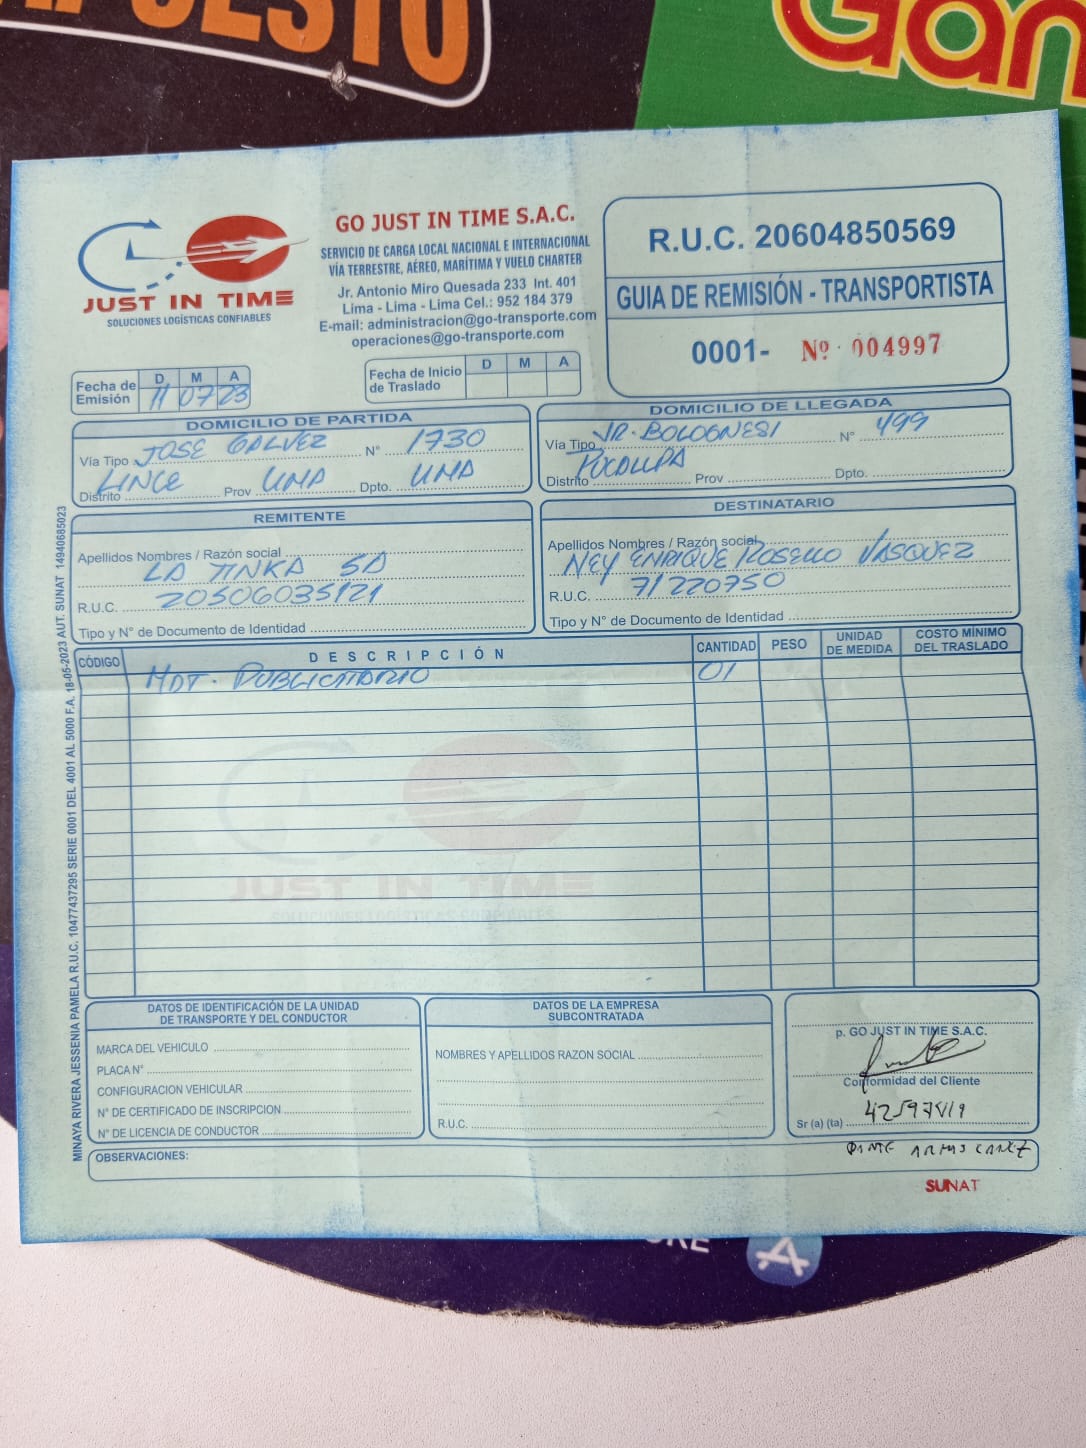 PUESTO
Gan
JUST IN TIME
SOLUCIONES LOGÍSTICAS CONFIABLES
GO JUST IN TIME S.A.C.
SERVICIO DE CARGA LOCAL NACIONAL E INTERNACIONAL
VÍA TERRESTRE, AÉREO, MARÍTIMA Y VUELO CHARTER
Jr. Antonio Miro Quesada 233 Int. 401
Lima - Lima - Lima Cel.: 952 184 379
E-mail: administracion@go-transporte.com
operaciones@go-transporte.com
R.U.C. 20604850569
GUIA DE REMISIÓN - TRANSPORTISTA
0001- Nº 004997
Fecha de Emisión D M A 11 07 23
Fecha de Inicio de Traslado D M A
DOMICILIO DE PARTIDA
Vía Tipo JOSE GALVEZ N° 1730
Distrito LINCE Prov LIMA Dpto. LIMA
DOMICILIO DE LLEGADA
Vía Tipo JR. BOLOGNESI N° 499
Distrito PUCALLPA Prov Dpto.
REMITENTE
Apellidos Nombres / Razón social
LA TINKA SA
R.U.C. 20506035121
Tipo y N° de Documento de Identidad
DESTINATARIO
Apellidos Nombres / Razón social
NEY ENRIQUE ROSELLO VASQUEZ
R.U.C. 71220750
Tipo y N° de Documento de Identidad
CÓDIGO DESCRIPCIÓN CANTIDAD PESO UNIDAD DE MEDIDA COSTO MÍNIMO DEL TRASLADO
MAT. PUBLICITARIO 01
JUST IN TIME
SOLUCIONES LOGÍSTICAS CONFIABLES
MINAYA RIVERA JESSENIA PAMELA R.U.C. 10477437295 SERIE 0001 DEL 4001 AL 5000 F.A. 18-05-2023 AUT. SUNAT 14940685023
DATOS DE IDENTIFICACIÓN DE LA UNIDAD
DE TRANSPORTE Y DEL CONDUCTOR
MARCA DEL VEHICULO
PLACA N°
CONFIGURACION VEHICULAR
N° DE CERTIFICADO DE INSCRIPCION
N° DE LICENCIA DE CONDUCTOR
DATOS DE LA EMPRESA
SUBCONTRATADA
NOMBRES Y APELLIDOS RAZON SOCIAL
R.U.C.
p. GO JUST IN TIME S.A.C.
Conformidad del Cliente
Sr (a) (ta)
OBSERVACIONES:
SUNAT